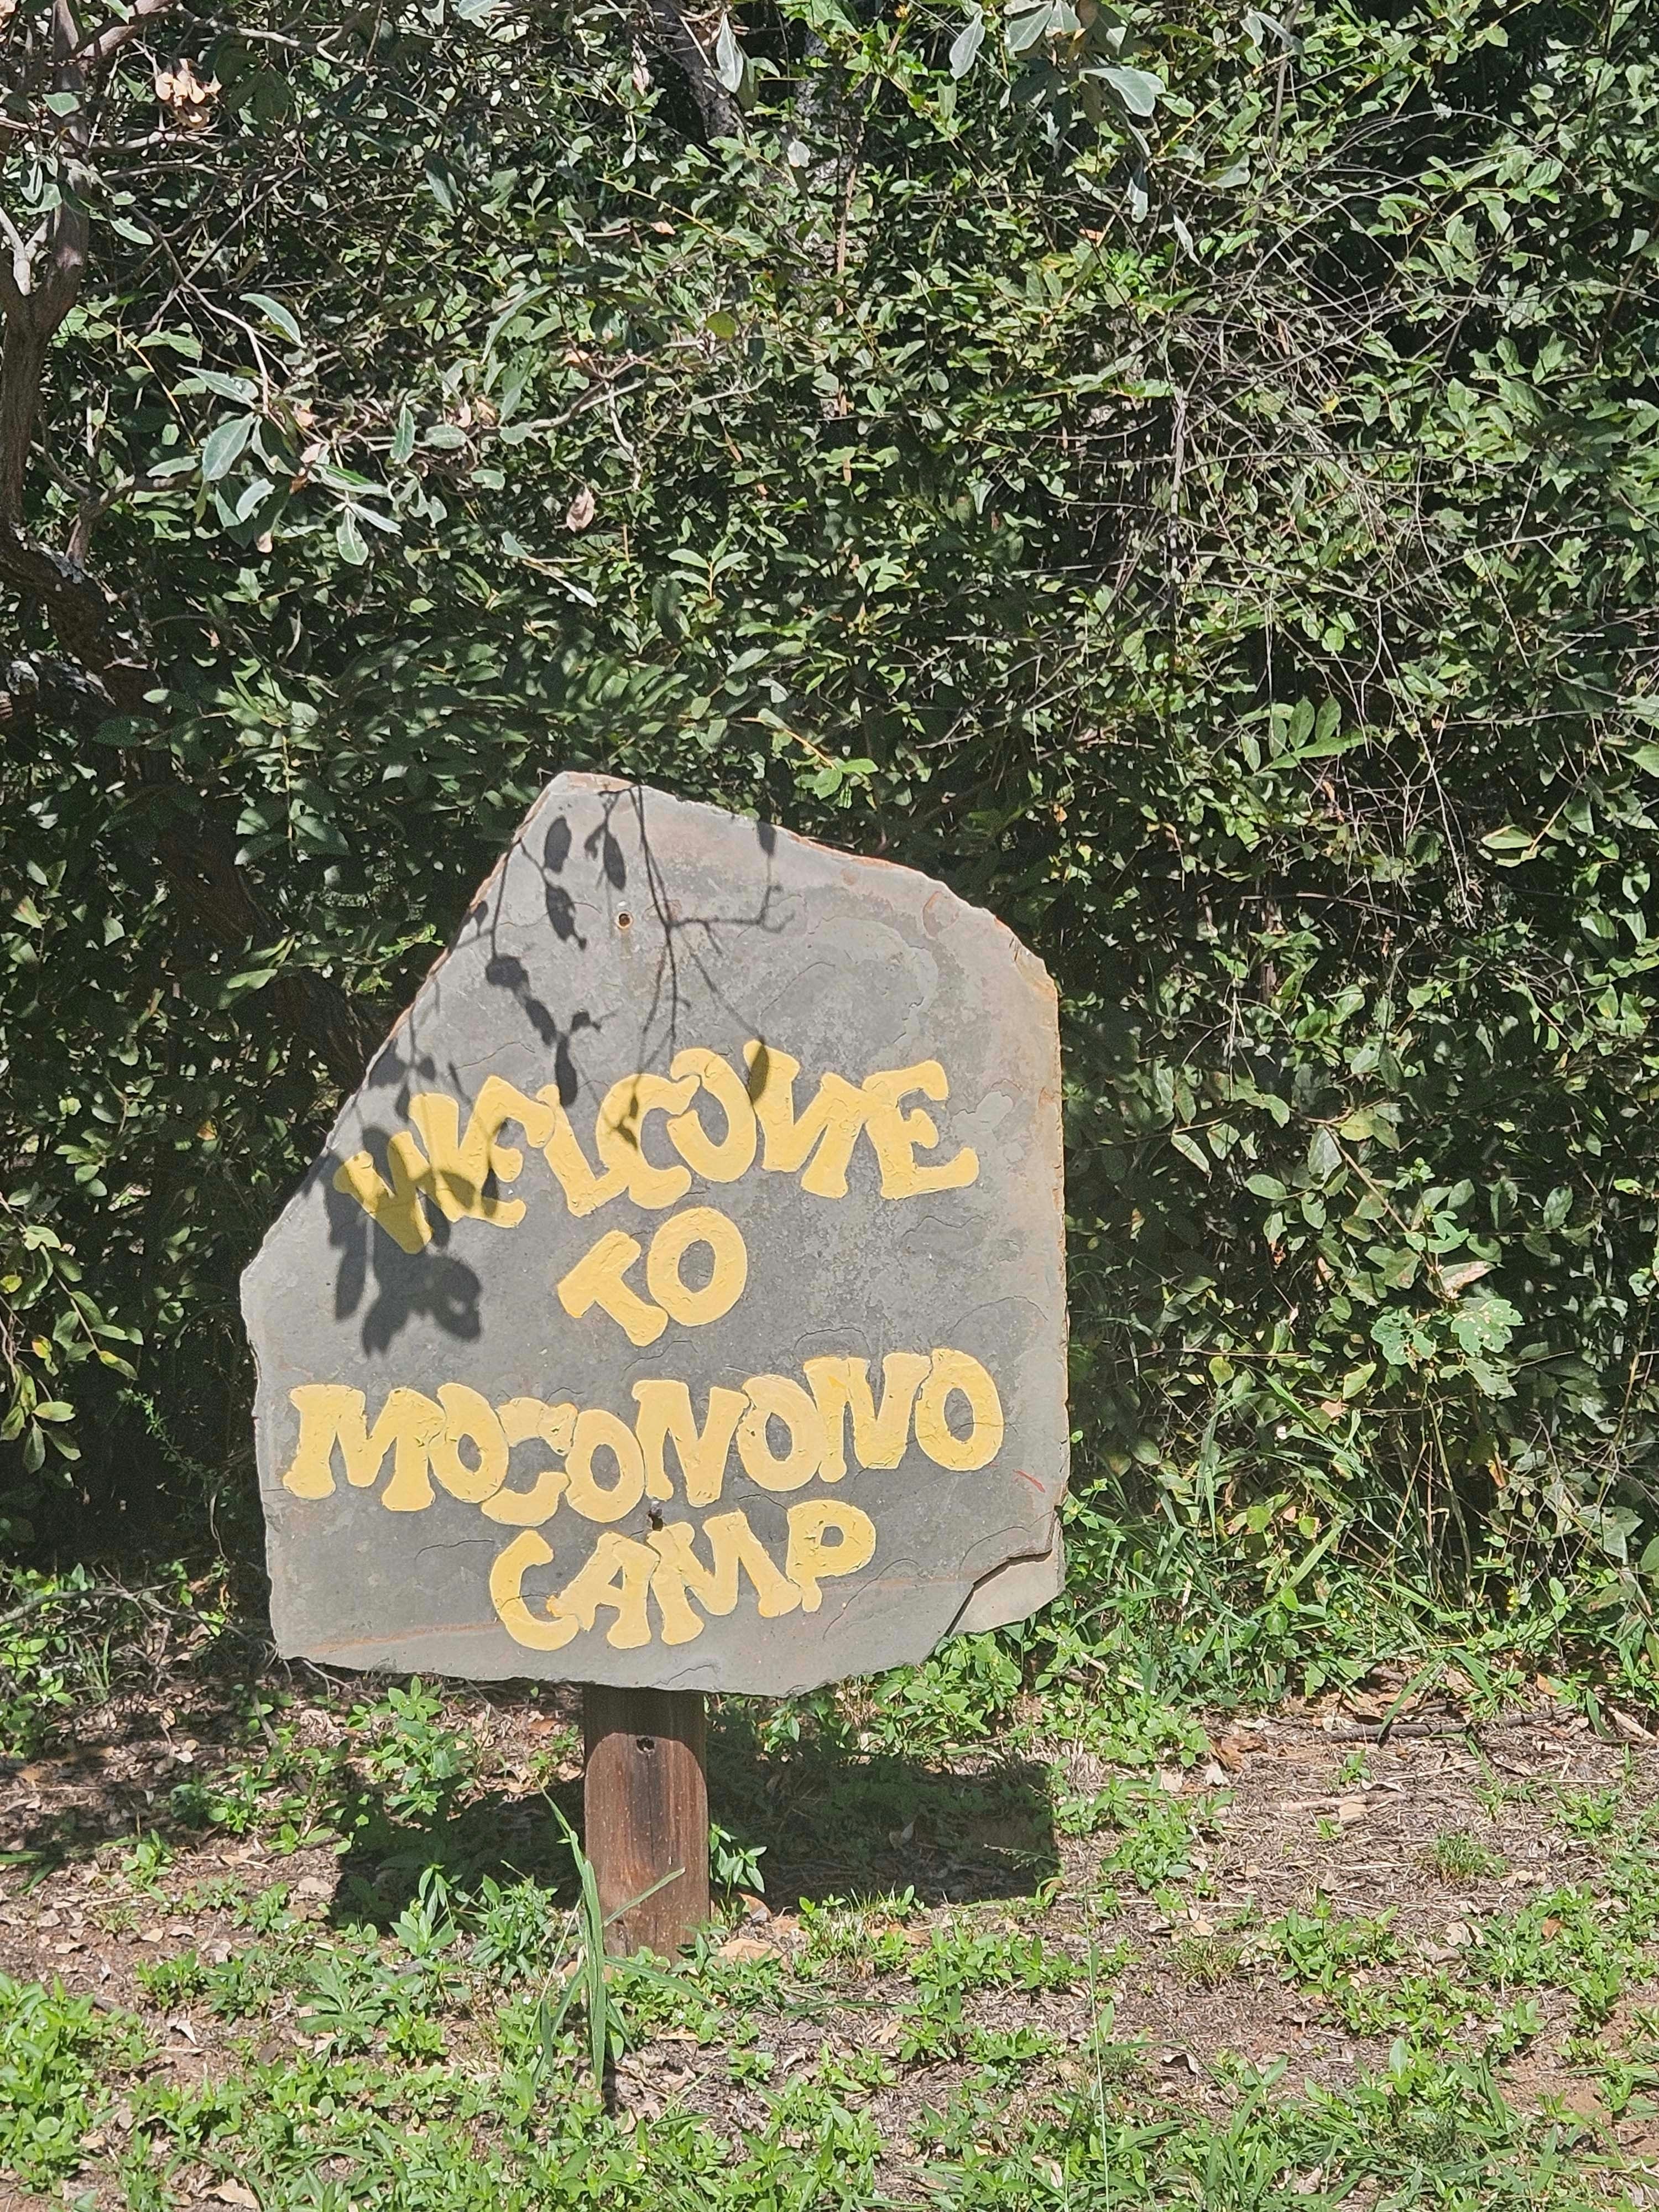 WELCOME
TO
MOCONONO
CAMP